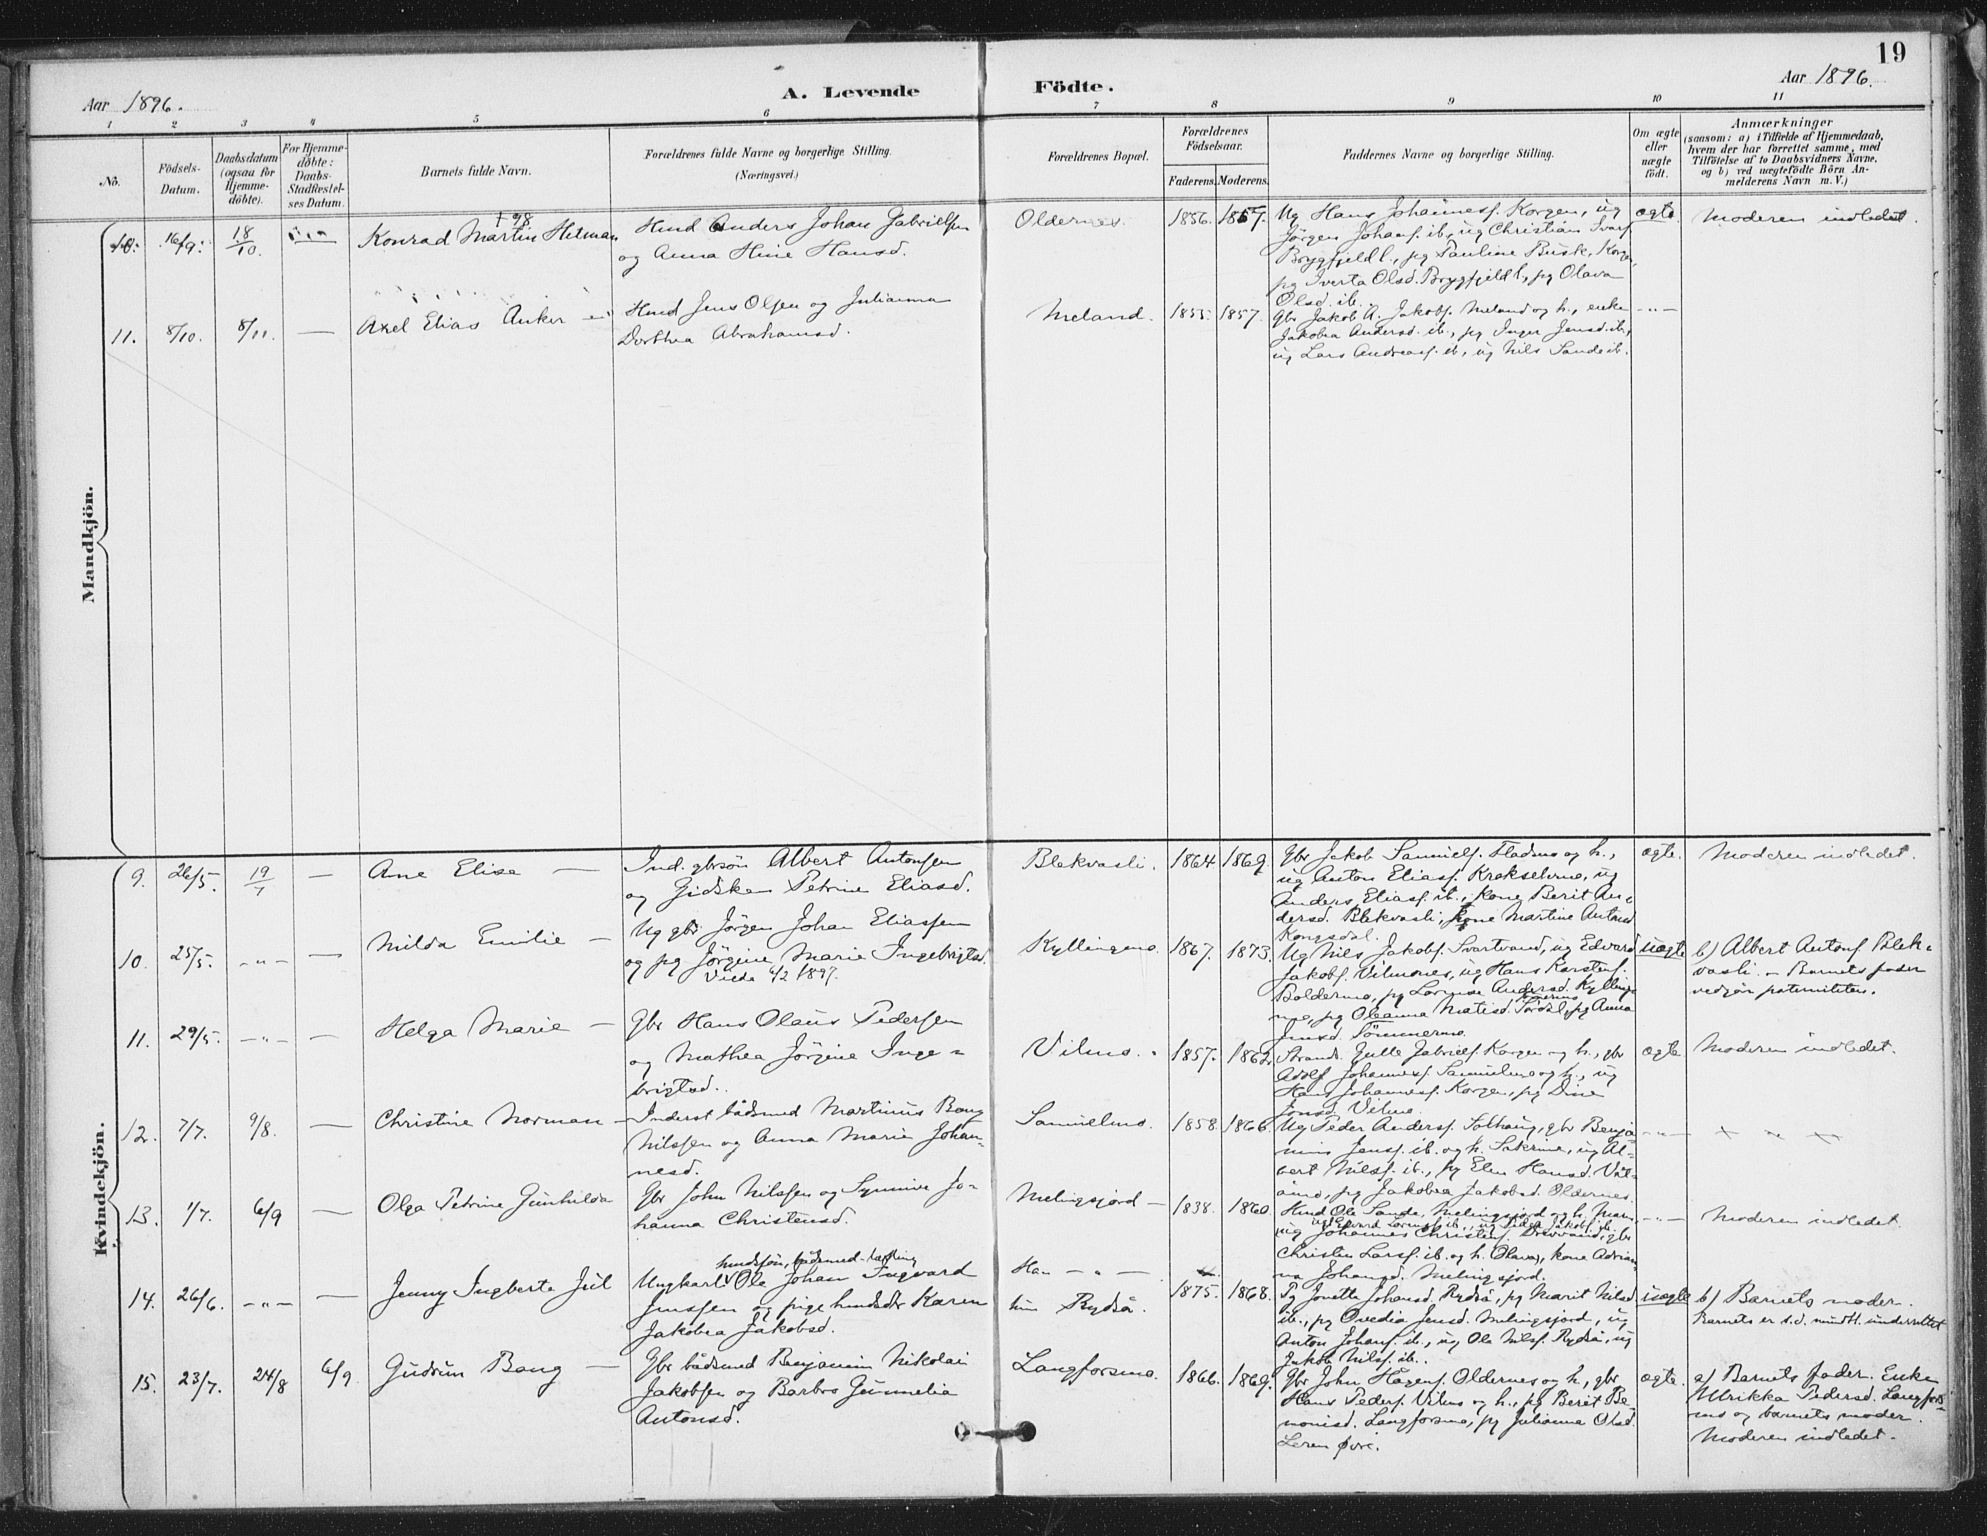 19
Aar 1896.
A. Levende
Födte.
Aar 1896.
1 2 3 4 5 6 7 8 9 10 11
No.
Födsels-
Datum.
Daabsdatum
(ogsaa for
Hjemme-
döbte).
For Hjemme-
döbte:
Daabs-
Stadfæstel-
ses Datum.
Barnets fulde Navn.
Forældrenes fulde Navne og borgerlige Stilling.
(Næringsvei.)
Forældrenes Bopæl.
Forældrenes
Födselsaar.
Faderens. Moderens.
Faddernes Navne og borgerlige Stilling.
Om ægte
eller
uægte
födt.
Anmærkninger
(saasom: a) i Tilfælde af Hjemmedaab,
hvem der har forrettet samme, med
Tilföielse af to Daabsvidners Navne,
og b) ved uægtefödte Börn An-
melderens Navn m. V.)
Mandkjön.
10. 16/9. 18/10.
† 98
Konrad Martin Hilman
Husmd Anders Johan Gabrielsen
og Anna Hansd.
Oldernes. 1856. 1857.
Ug Hans Johannesf. Korgen, ug
Jörgen Johanf. ib., ug Christian Ivarf.
Brygfjeld l., pg Pauline Busk, Korgen,
pg Iverta Olsd. Brygfjeld l., pg Olava
Olsd. ib.
ægte. Moderen indledet.
11. 8/10. 8/11. —
Axel Elias Anker
Husmd Jens Olsen og Julianna
Dorthea Abrahamsd.
Meland. 1855. 1857.
Gbr Jakob A. Jakobf. Meland og h., enke
Jakobea Andersd. ib., pg Inger Jensd. ib.,
ug Lars Andreasf. ib., ug Nils Sande ib.
— " —
Kvindekjön.
9. 26/5. 19/7 —
Ane Elise —
Ind. gbrsön Albert Antonsen
og Gidsken Petrine Eliasd.
Blekvasli. 1864. 1869.
Gbr Jakob Samuelf. Fladmo og h.,
ug Anton Eliasf. Krokselvmo, ug
Anders Eliasf. ib., kone Berit An-
dersd. Blekvasli, kone Martine Antonsd
Kongsdal.
ægte. Moderen indledet.
10. 25/5. — " — —
Milda Emilie —
Ug gbr. Jörgen Johan Eliassen
og pg Jörgine Marie Ingebrigtsd.
Viede 6/2 1897.
Kyllingmo. 1867. 1873.
Ug Nils Jakobf. Svartvand, ug Edvard
Jakobf. Vilmones, ug Hans Karstenf.
Boldermo, pg Lorense Andersd. Kylling-
mo, pg Oleanna Matisd. Tordal, pg Anna
Jensd. Tömmermo.
uægte
b) Albert Antonf Blek-
vasli. — Barnets fader
vedgår paterniteten.
11. 29/5. — " — —
Helga Marie —
Gbr Hans Olaus Pedersen
og Mathea Jörgine Inge-
brigtsd..
Vilmo. 1857. 1862.
Strands. Gulle Gabrielf. Korgen og h., gbr
Adolf Johannesf. Samuelmo og h., ug
Hans Johannesf. Korgen, pg Dine
Jonsd. Vilmo.
ægte. Moderen indledet.
12. 7/7. 9/8. —
Christine Norman —
Inderst bådsmed Martinus Bang
Nilssen og Anna Marie Johan-
nesd.
Samuelmo. 1858. 1866.
Ug Peder Andersf. Solhaug, gbr Benja-
min Jensf. ib. og h. Sakrine, ug Al-
bert Nilsf. ib., pg Elen Hansd. Vil-
mo, pg Jakobea Jakobsd. Oldernes.
— " —
13. 1/7. 6/9 —
Olga Petrine Gunhilda
Gbr John Nilssen og Synnive Jo-
hanna Christensd.
Melingsjord — 1838. 1860.
Husmd Ole Sande, Melingsjord og h. Marn,
ug Edvard Lorensf. ib., ug Peder Jakobf. ib.
ug Johannes Christenf. Drevvand, gbr
Christen Larsf. ib. og h. Olava, kone Adrian-
na Johansd. Melingsjord.
— " — Moderen indledet.
14. 26/6. — " — —
Jenny Ingberta Jul
husmdsön, bådsmed-lærling
Ungkarl Ole Johan Ingvard
Jenssen og pige husmdsdr Karen
Jakobea Jakobsd.
Han — " —
hun Rydså.
1875. 1868.
Pg Jonette Johansd. Rydså, pg Marit Nilsd
ib., pg Ovedia Jensd. Melingsjord, ug
Anton Johanf. ib., ug Ole Nilsf. Rydså, ug
Jakob Nilsf. ib..
uægte
b) Barnets moder.
Barnets er s.d. mundtl. underrettet
15. 23/7. 24/8 6/9
Gudrun Bang —
Gbr bådsmed Benjamin Nikolai
Jakobsen og Barbro Gunnelia
Antonsd.
Langforsmo. 1866. 1869.
Gbr John Hågenf. Oldernes og h., gbr
Hans Pedersf. Vilmo og h., pg Berit Be-
nonisd. Langforsmo, pg Julianna Olsd.
Leren övre.
ægte.
a) Barnets fader. Enke
Ulrikka Pedersd. Langfors-
mo og barnets moder.
Moderen indledet.